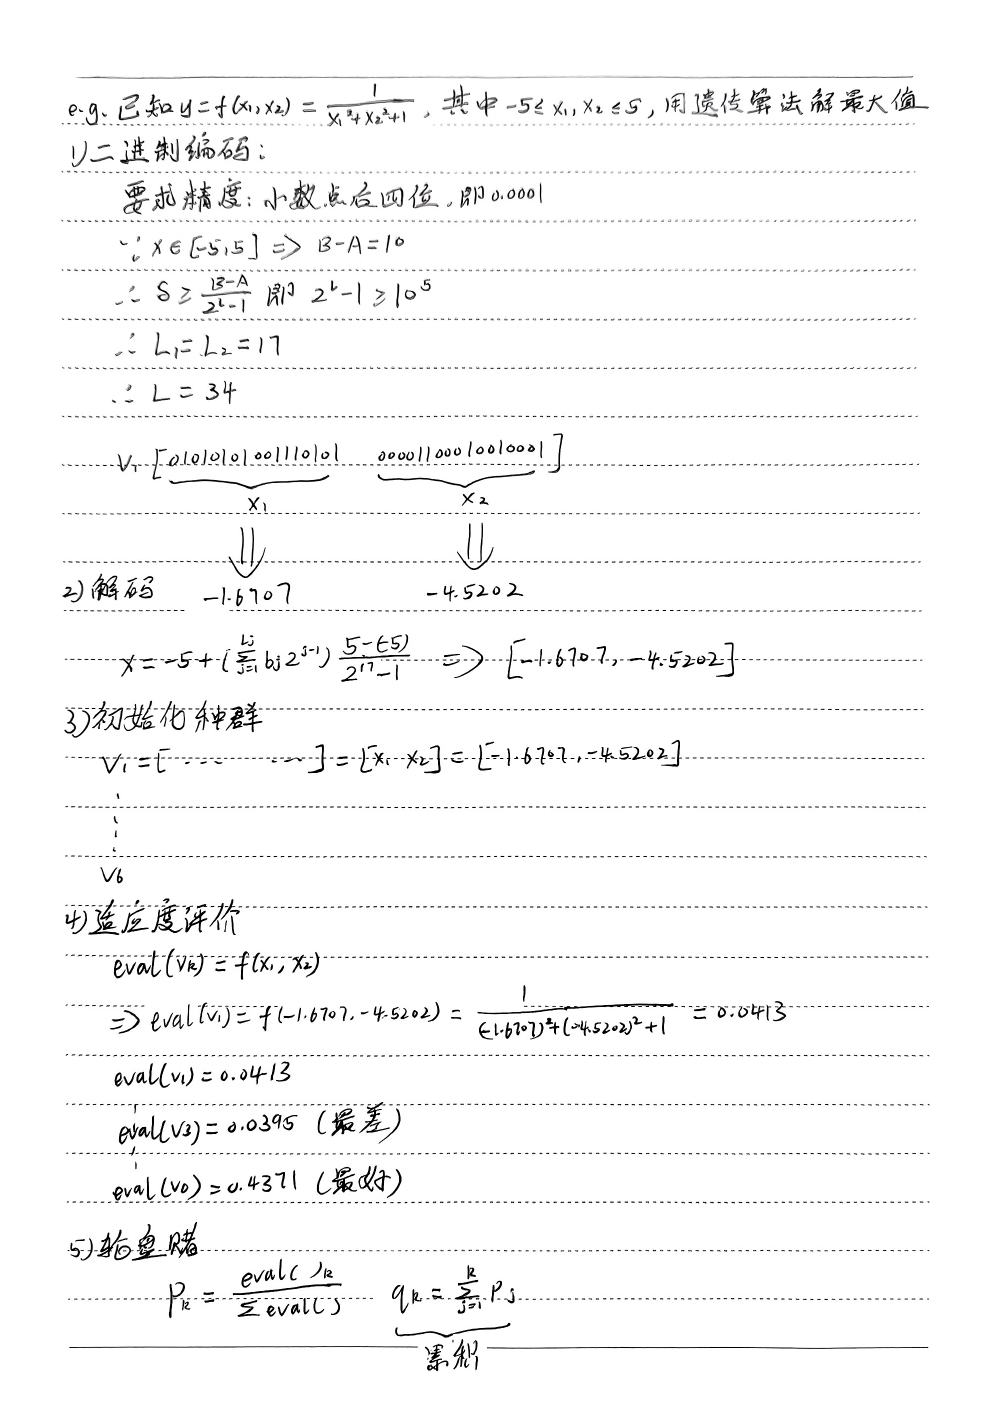 e.g. 已知 y=f(x₁,x₂) = 1/(x₁²+x₂²+1) , 其中 -5≤x₁,x₂≤5, 用遗传算法解最大值
1)二进制编码:
要求精度: 小数点后四位, 即0.0001
∵ x∈[-5,5] => B-A=10
∴ δ ≥ (B-A)/(2^L-1) 即 2^L-1 ≥10⁵
∴ L₁=L₂=17
∴ L = 34
V₁ [01010101001110101 00001100010010001]
x₁ x₂
2)解码 -1.6707 -4.5202
x = -5+(∑_{j=1}^{Lj} bj 2^{j-1}) (5-(-5))/(2^17-1) => [-1.6707, -4.5202]
3)初始化种群
V₁ = [ ... ... ] = [x₁ x₂] = [-1.6707, -4.5202]
V6
4)适应度评价
eval(Vk) = f(x₁, x₂)
=> eval(V₁) = f(-1.6707, -4.5202) = 1/((-1.6707)²+(-4.5202)²+1) = 0.0413
eval(V₁) = 0.0413
eval(V3) = 0.0395 (最差)
eval(V0) = 0.4371 (最好)
5)轮盘赌
Pk = eval( )k / ∑eval( )j qk = ∑_{j=1}^{k} Pj
累积